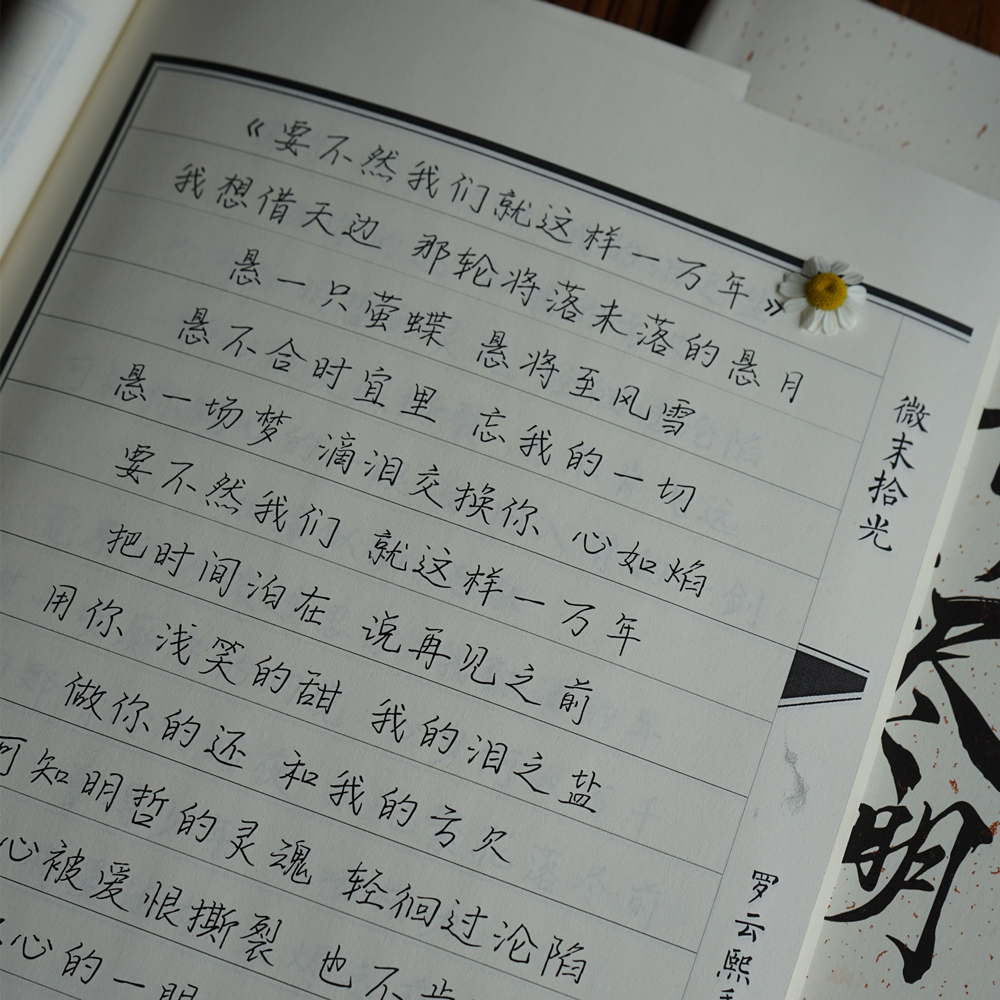 《要不然我们就这样一万年》
我想借天边 那轮将落未落的悬月
悬一只萤蝶 悬将至风雪
悬不合时宜里 忘我的一切
悬一场梦 滴泪交换你 心如焰
要不然我们 就这样一万年
把时间泊在 说再见之前
用你 浅笑的甜 我的泪之盐
做你的还 和我的亏欠
可知明哲的灵魂 轻徊过沦陷
心被爱恨撕裂 也不
心的一
微末拾光
罗云熙
明